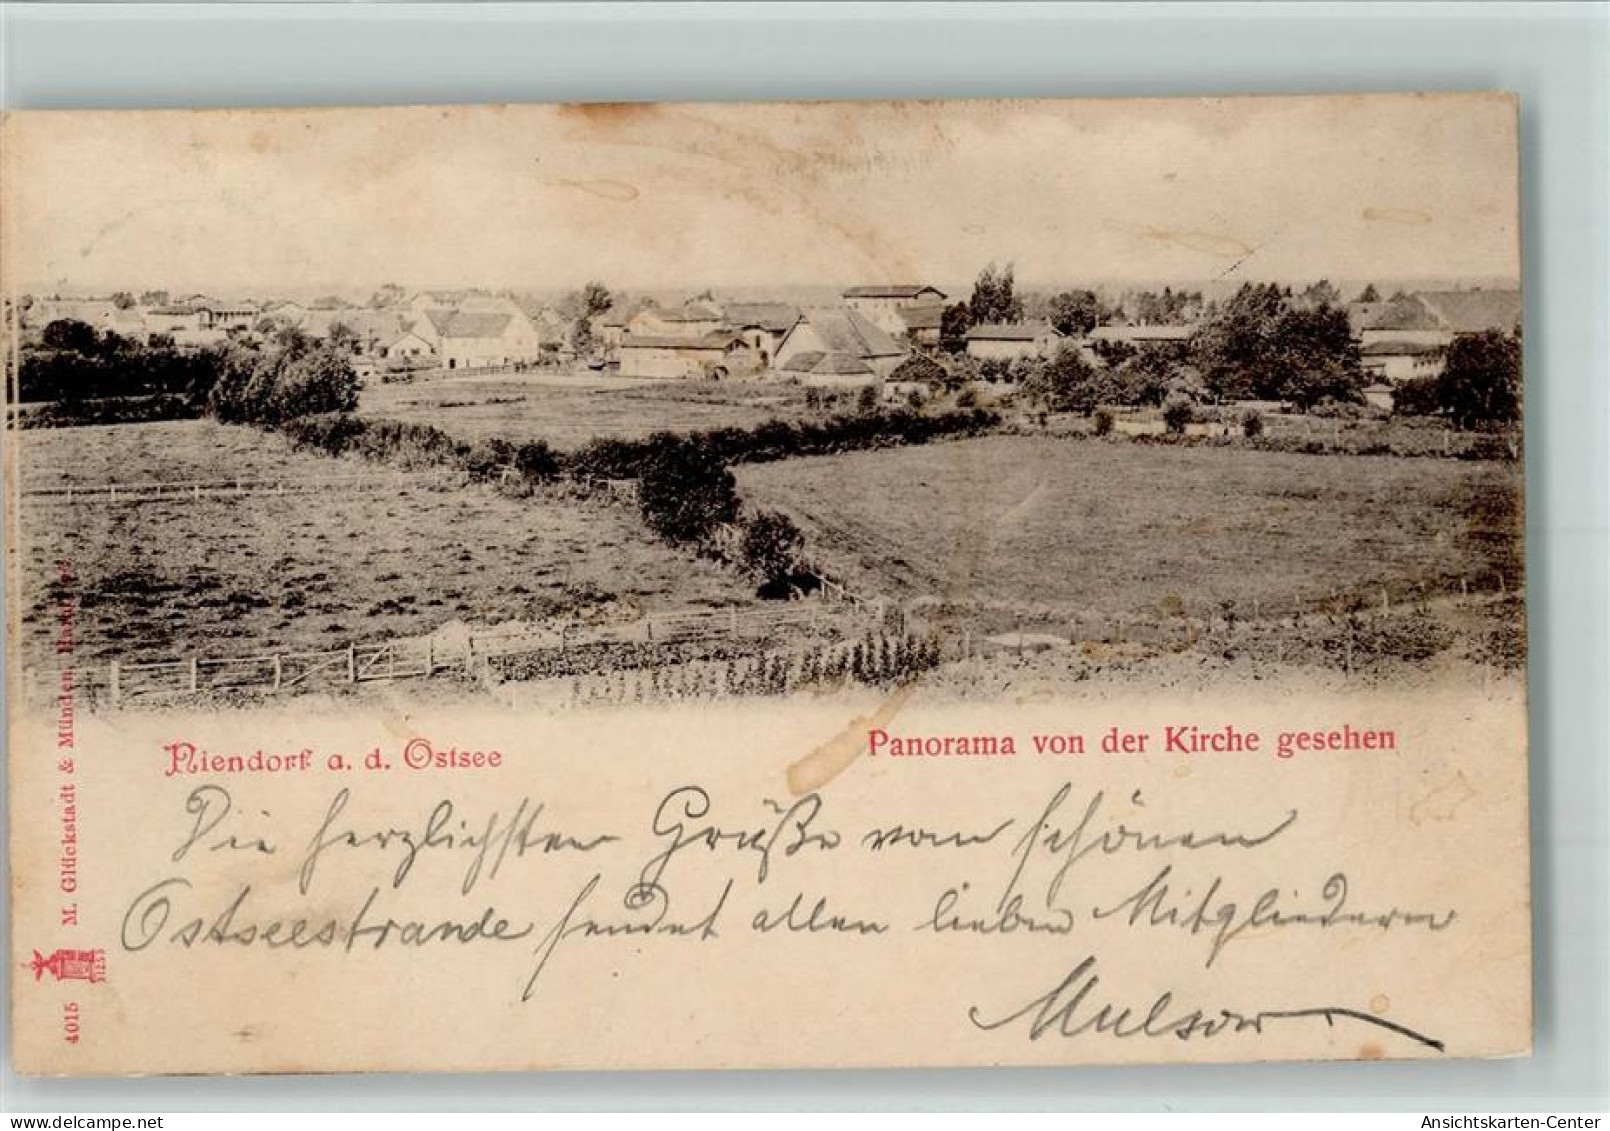 Niendorf a. d. Ostsee
Panorama von der Kirche gesehen
Die herzlichsten Grüße vom schönen
Ostseestrande sendet allen lieben Mitgliedern
Mulsow
M. Glückstadt & Münden, Hamburg
4015
delcampe.net
Ansichtskarten-Center